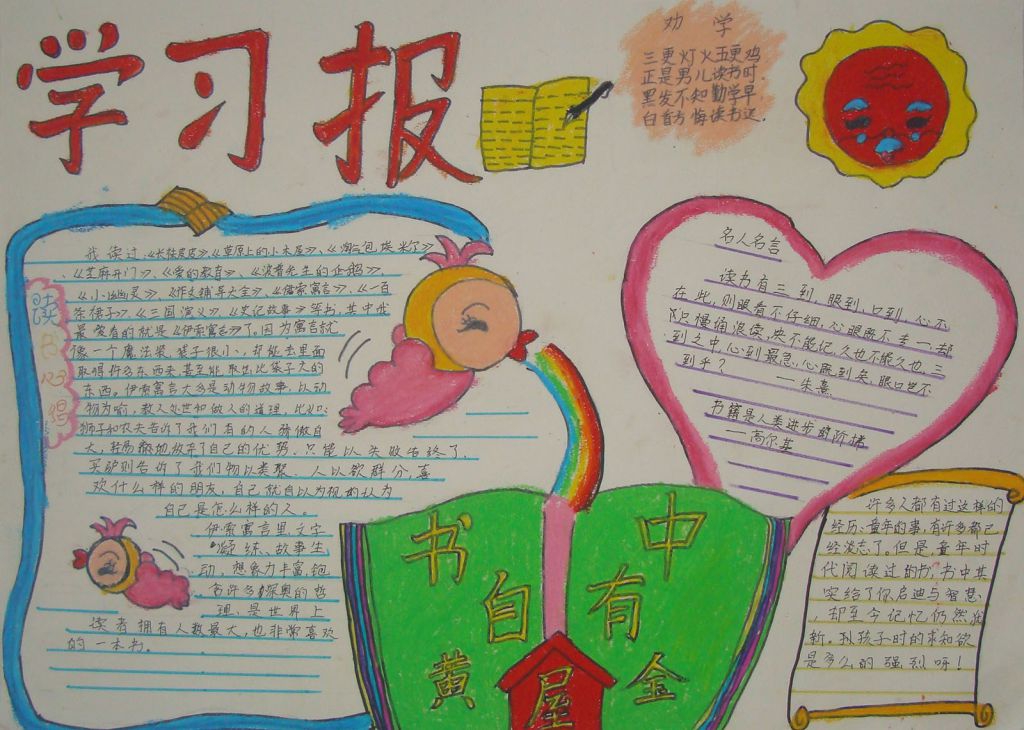 学习报
劝学
三更灯火五更鸡
正是男儿读书时.
黑发不知勤学早
白首方悔读书迟.
读书心得
我读过《长袜皮皮》、《草原上的小木屋》、《淘气包埃米尔》
、《芝麻开门》、《爱的教育》、《波普先生的企鹅》、
《小幽灵》、《作文辅导大全》、《伊索寓言》、《一百
条裙子》、《三国演义》、《史记故事》等书,其中我
最爱看的就是《伊索寓言》了。因为寓言就
像一个魔法袋,袋子很小,却能去里面
取得许多东西来,甚至能取出比袋子大的
东西。伊索寓言大多是动物故事,以动
物为喻,教人处世和做人的道理,比如:
狮子和农夫告诉了我们有的人骄傲自
大,轻易地放弃了自己的优势,只能以失败告终了。
买驴则告诉了我们物以类聚、人以群分,喜
欢什么样的朋友,自己就自以为认为
自己是怎么样的人。
伊索寓言里,文字
凝练、故事生
动,想象力丰富,饱
含许多深奥的哲
理、是世界上
读者拥有人数最大,也非常喜欢
的一本书。
名人名言
读书有三到,眼到,口到,心不
在此,则眼看不仔细,心眼既不专一,却
只漫诵浪读,决不能记,久也不能久也,三
到之中,心到最急,心既到矣,眼口岂不
到乎?——朱熹
书籍是人类进步的阶梯
——高尔基
许多人都有过这样的
经历:童年的事,有许多都已
经淡忘了。但是,童年时
代阅读过的书,书中其
实给了你启迪与智慧,
却至今记忆仍然犹
新。孩子时的求知欲
是多么的强烈呀!
书中
自有
黄金
屋